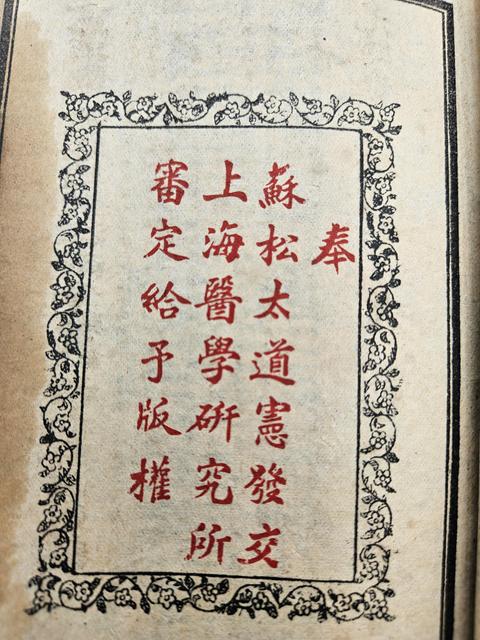 奉
蘇松太道憲發交
上海醫學硏究所
審定給予版權